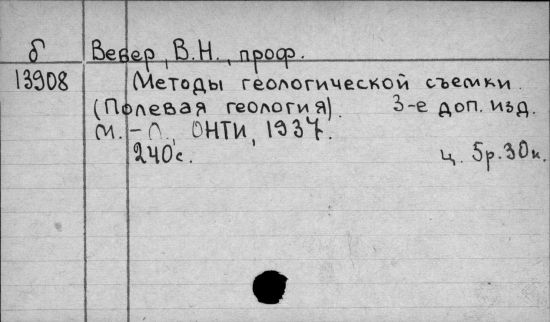 б Вебер, В.Н., проф.
13908 Методы геологической съемки.
(Полевая геология). 3-е доп. изд.
М.-Л., ОНТИ, 1937.
240 с. ц. 5р.30к.